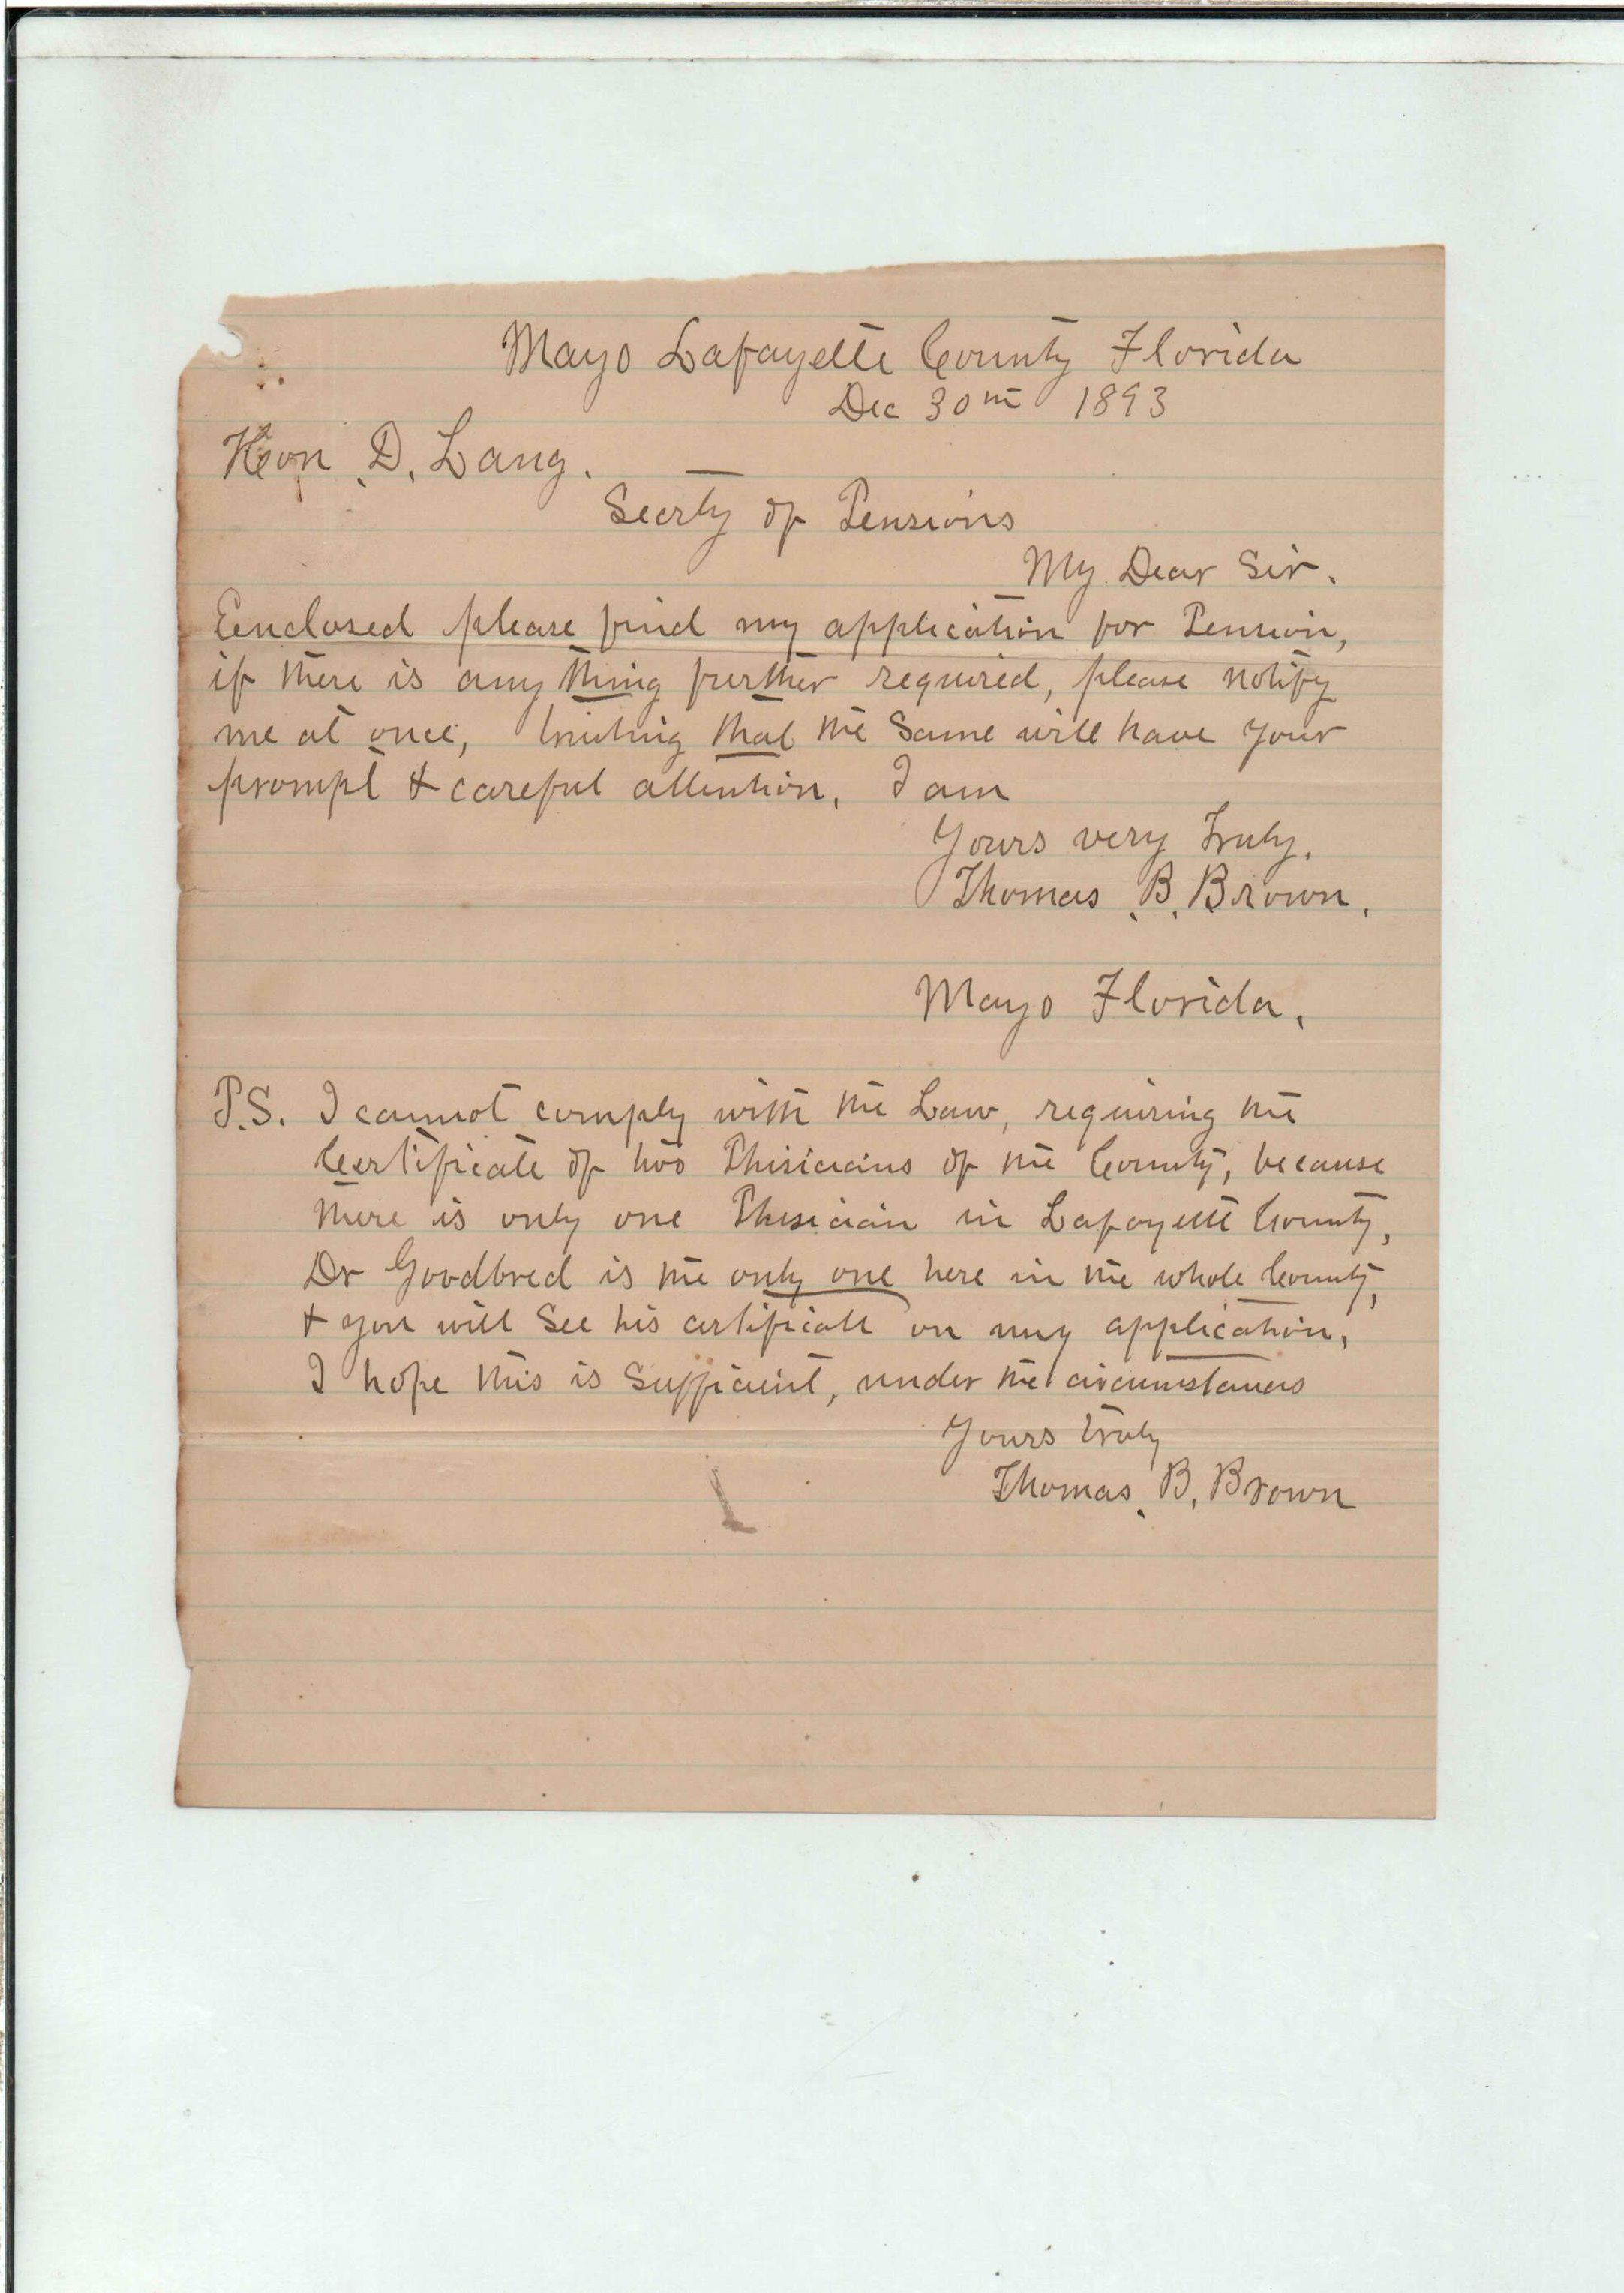 Mayo Lafayette County Florida
Dec 30th 1893
Hon. D. Lang.
Secrty of Pensions
My Dear Sir.
Eenclosed please find my application for Pension,
if there is any thing further required, please notify
me at once, trusting that the Same will have your
prompt & careful attention, I am
Yours very Truly,
Thomas B. Brown.
Mayo Florida.
P.S. I cannot comply with the Law, requiring the
Certificate of two Phisicians of the County, because
there is only one Phisician in Lafayette County,
Dr Goodbred is the only one here in the whole County,
& you will See his certificate on my application,
I hope this is Sufficient, under the circumstances
Yours truly
Thomas B. Brown